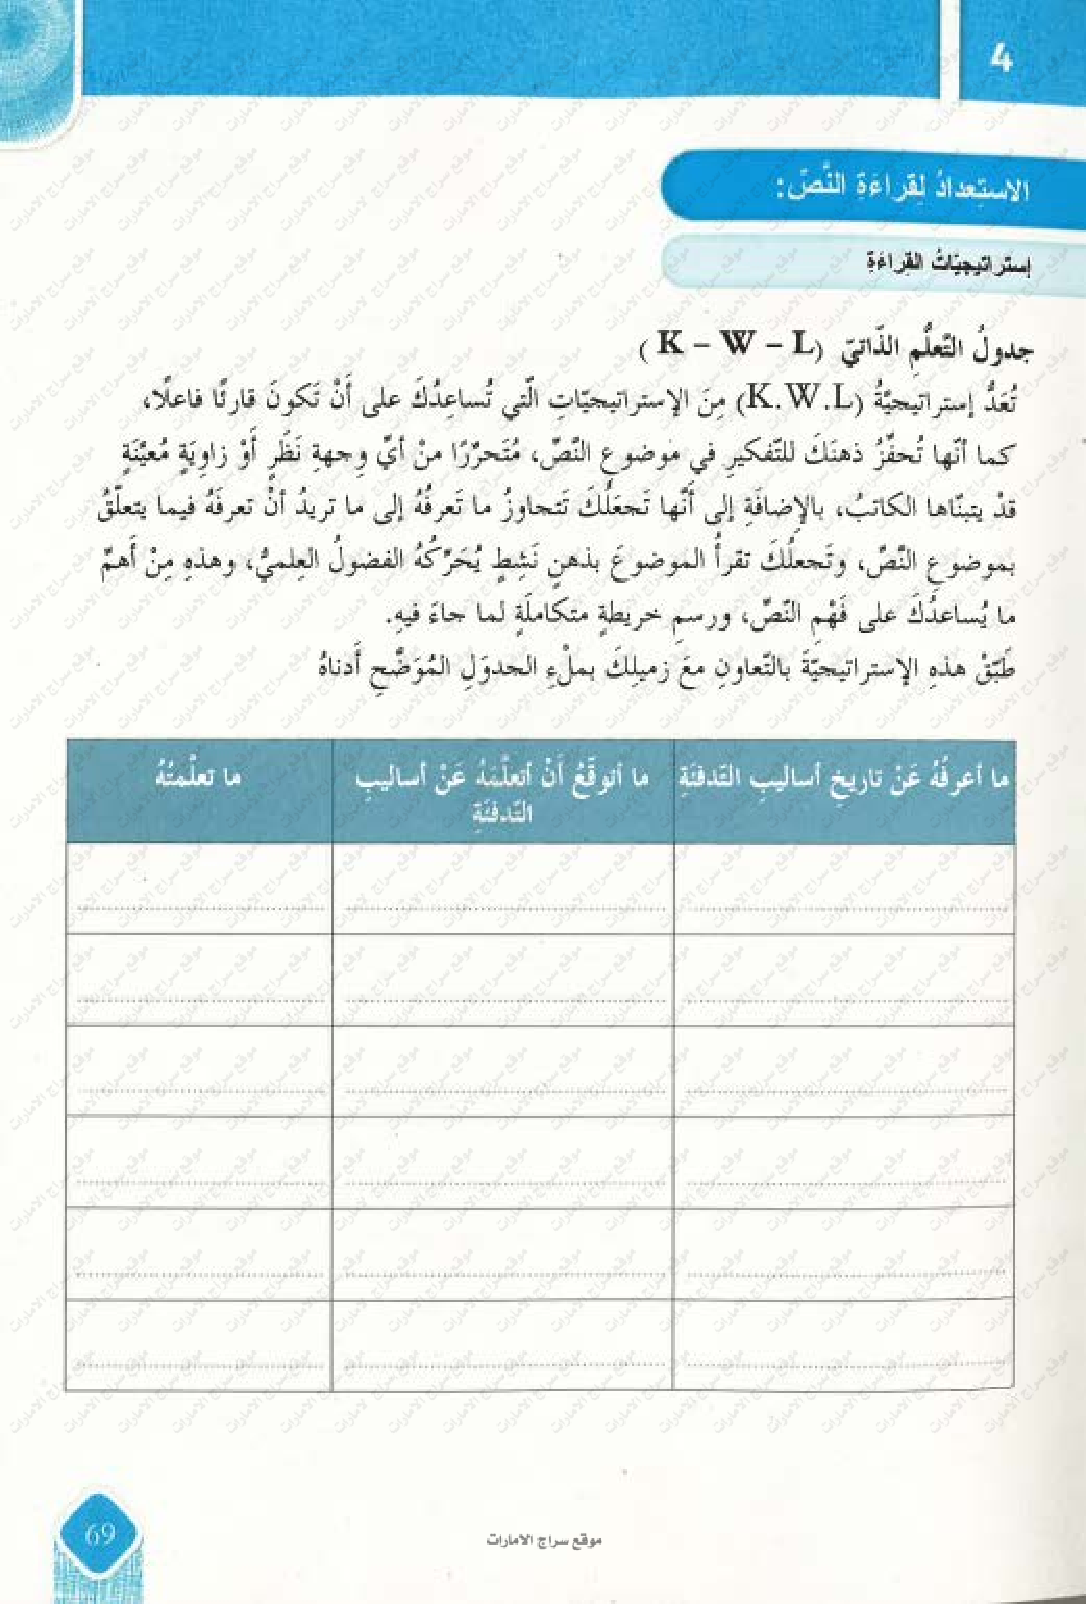 4
الاستِعدادُ لِقراءَةِ النَّصِّ:
إستراتيجيّاتُ القراءَةِ
جدولُ التّعلُّمِ الذّاتيّ (K – W – L)
تُعَدُّ إستراتيجيّةُ (K.W.L) مِنَ الإستراتيجيّاتِ الّتي تُساعِدُكَ على أَنْ تَكونَ قارئًا فاعلًا،
كما أنّها تُحفِّزُ ذهنَكَ للتّفكيرِ في موْضوعِ النّصِّ، مُتَحرّرًا منْ أيِّ وِجهةِ نَظَرٍ أَوْ زاوِيَةٍ مُعيَّنَةٍ
قدْ يتبنّاها الكاتبُ، بالإضافَةِ إلى أنَّها تَجعَلُكَ تَتجاوزُ ما تَعرفُهُ إلى ما تريدُ أنْ تعرفَهُ فيما يتعلّقُ
بموضوعِ النّصِّ، وتَجعلُكَ تقرأُ الموضوعَ بذهنٍ نَشِطٍ يُحَرّكُهُ الفضولُ العِلميُّ، وهذهِ مِنْ أَهمِّ
ما يُساعدُكَ على فَهْمِ النّصِّ، ورسمِ خريطةٍ متكاملَةٍ لما جاءَ فيهِ.
طَبّقْ هذهِ الإستراتيجيّةَ بالتّعاونِ معَ زميلِكَ بملْءِ الجدوَلِ المُوَضَّحِ أَدناهُ
ما أعرفُهُ عَنْ تاريخِ أساليبِ التّدفئَةِ
ما أتوقَّعُ أَنْ أتعلَّمَهُ عَنْ أساليبِ
التّدفئَةِ
ما تعلَّمتُهُ
موقع سراج الامارات
69